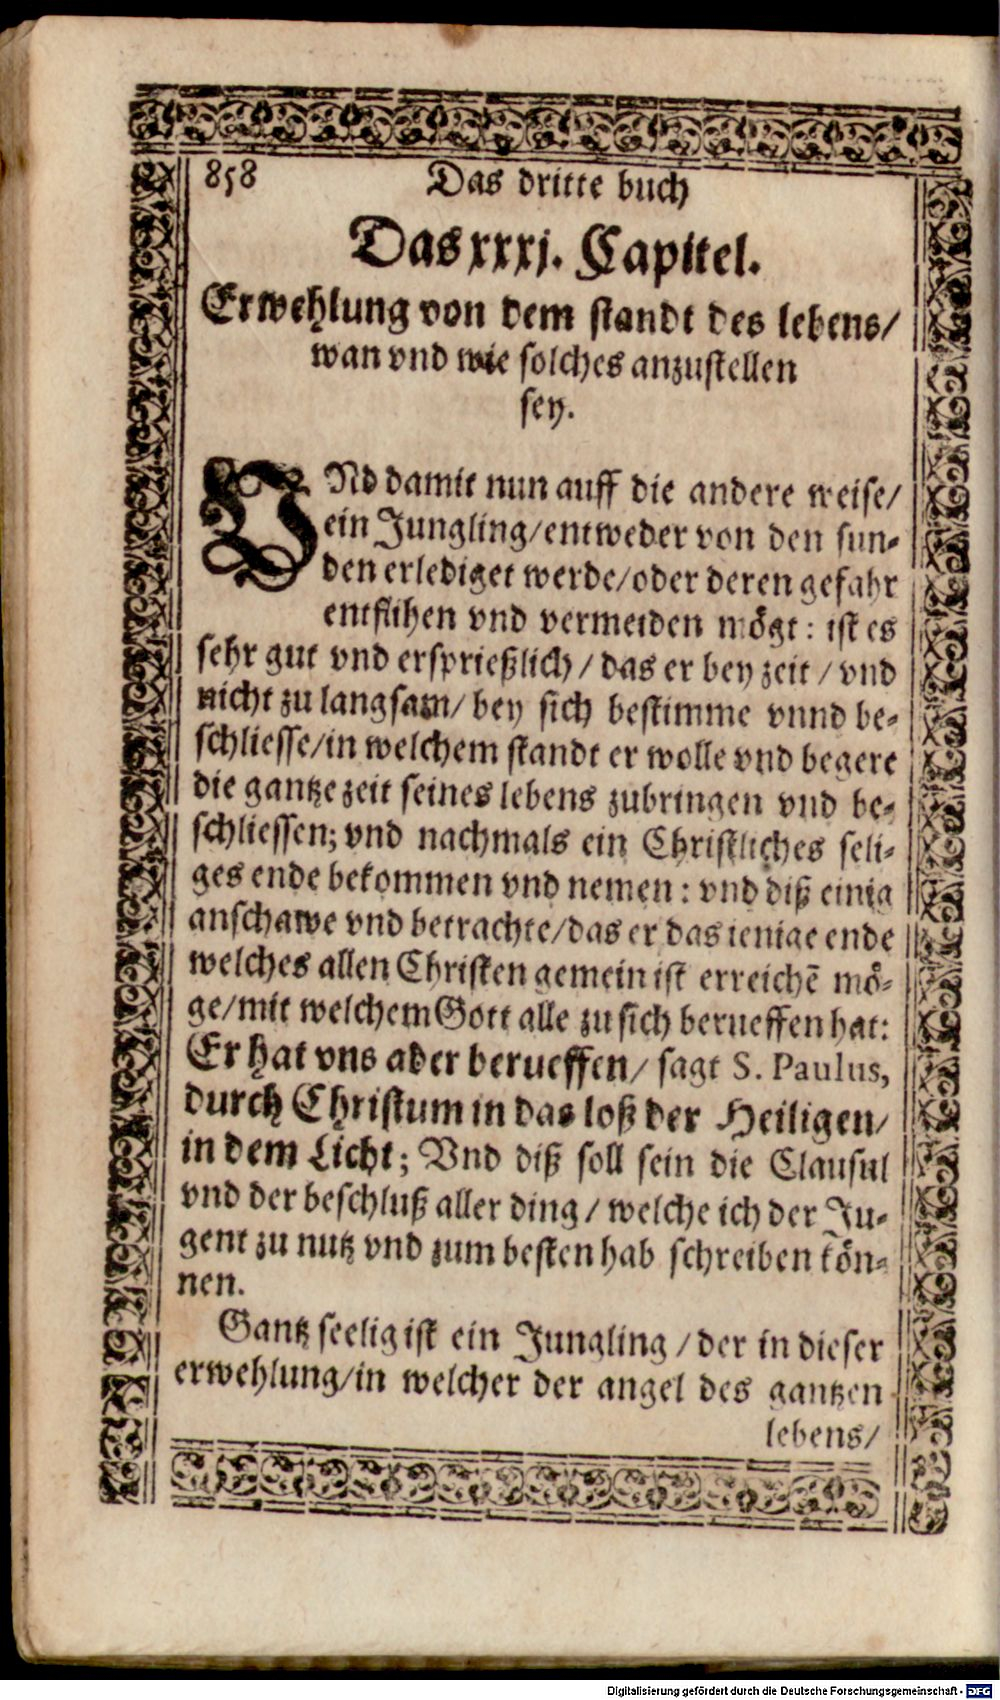 858 Das dritte buch
Das xxxj. Capitel.
Erwehlung von dem standt des lebens/
wan vnd wie solches anzustellen
sey.
VNd damit nun auff die andere weise/
ein Jungling/entweder von den sun-
den erlediget werde/oder deren gefahr
entflihen vnd vermeiden mögt: ist es
sehr gut vnd ersprießlich/ das er bey zeit / vnd
nicht zu langsam/ bey sich bestimme vnnd be-
schliesse/in welchem standt er wolle vnd begere
die gantze zeit seines lebens zubringen vnd be-
schliessen; vnd nachmals ein Christliches seli-
ges ende bekommen vnd nemen: vnd diß einig
anschawe vnd betrachte/das er das ienige ende
welches allen Christen gemein ist erreichē mö-
ge/mit welchem Gott alle zu sich berueffen hat:
Er hat vns aber berueffen/ sagt S. Paulus,
durch Christum in das loß der Heiligen/
in dem Licht; Vnd diß soll sein die Clausul
vnd der beschluß aller ding/ welche ich der Ju-
gent zu nutz vnd zum besten hab schreiben kön-
nen.
Gantz seelig ist ein Jungling /der in dieser
erwehlung/in welcher der angel des gantzen
lebens/
Digitalisierung gefördert durch die Deutsche Forschungsgemeinschaft - DFG